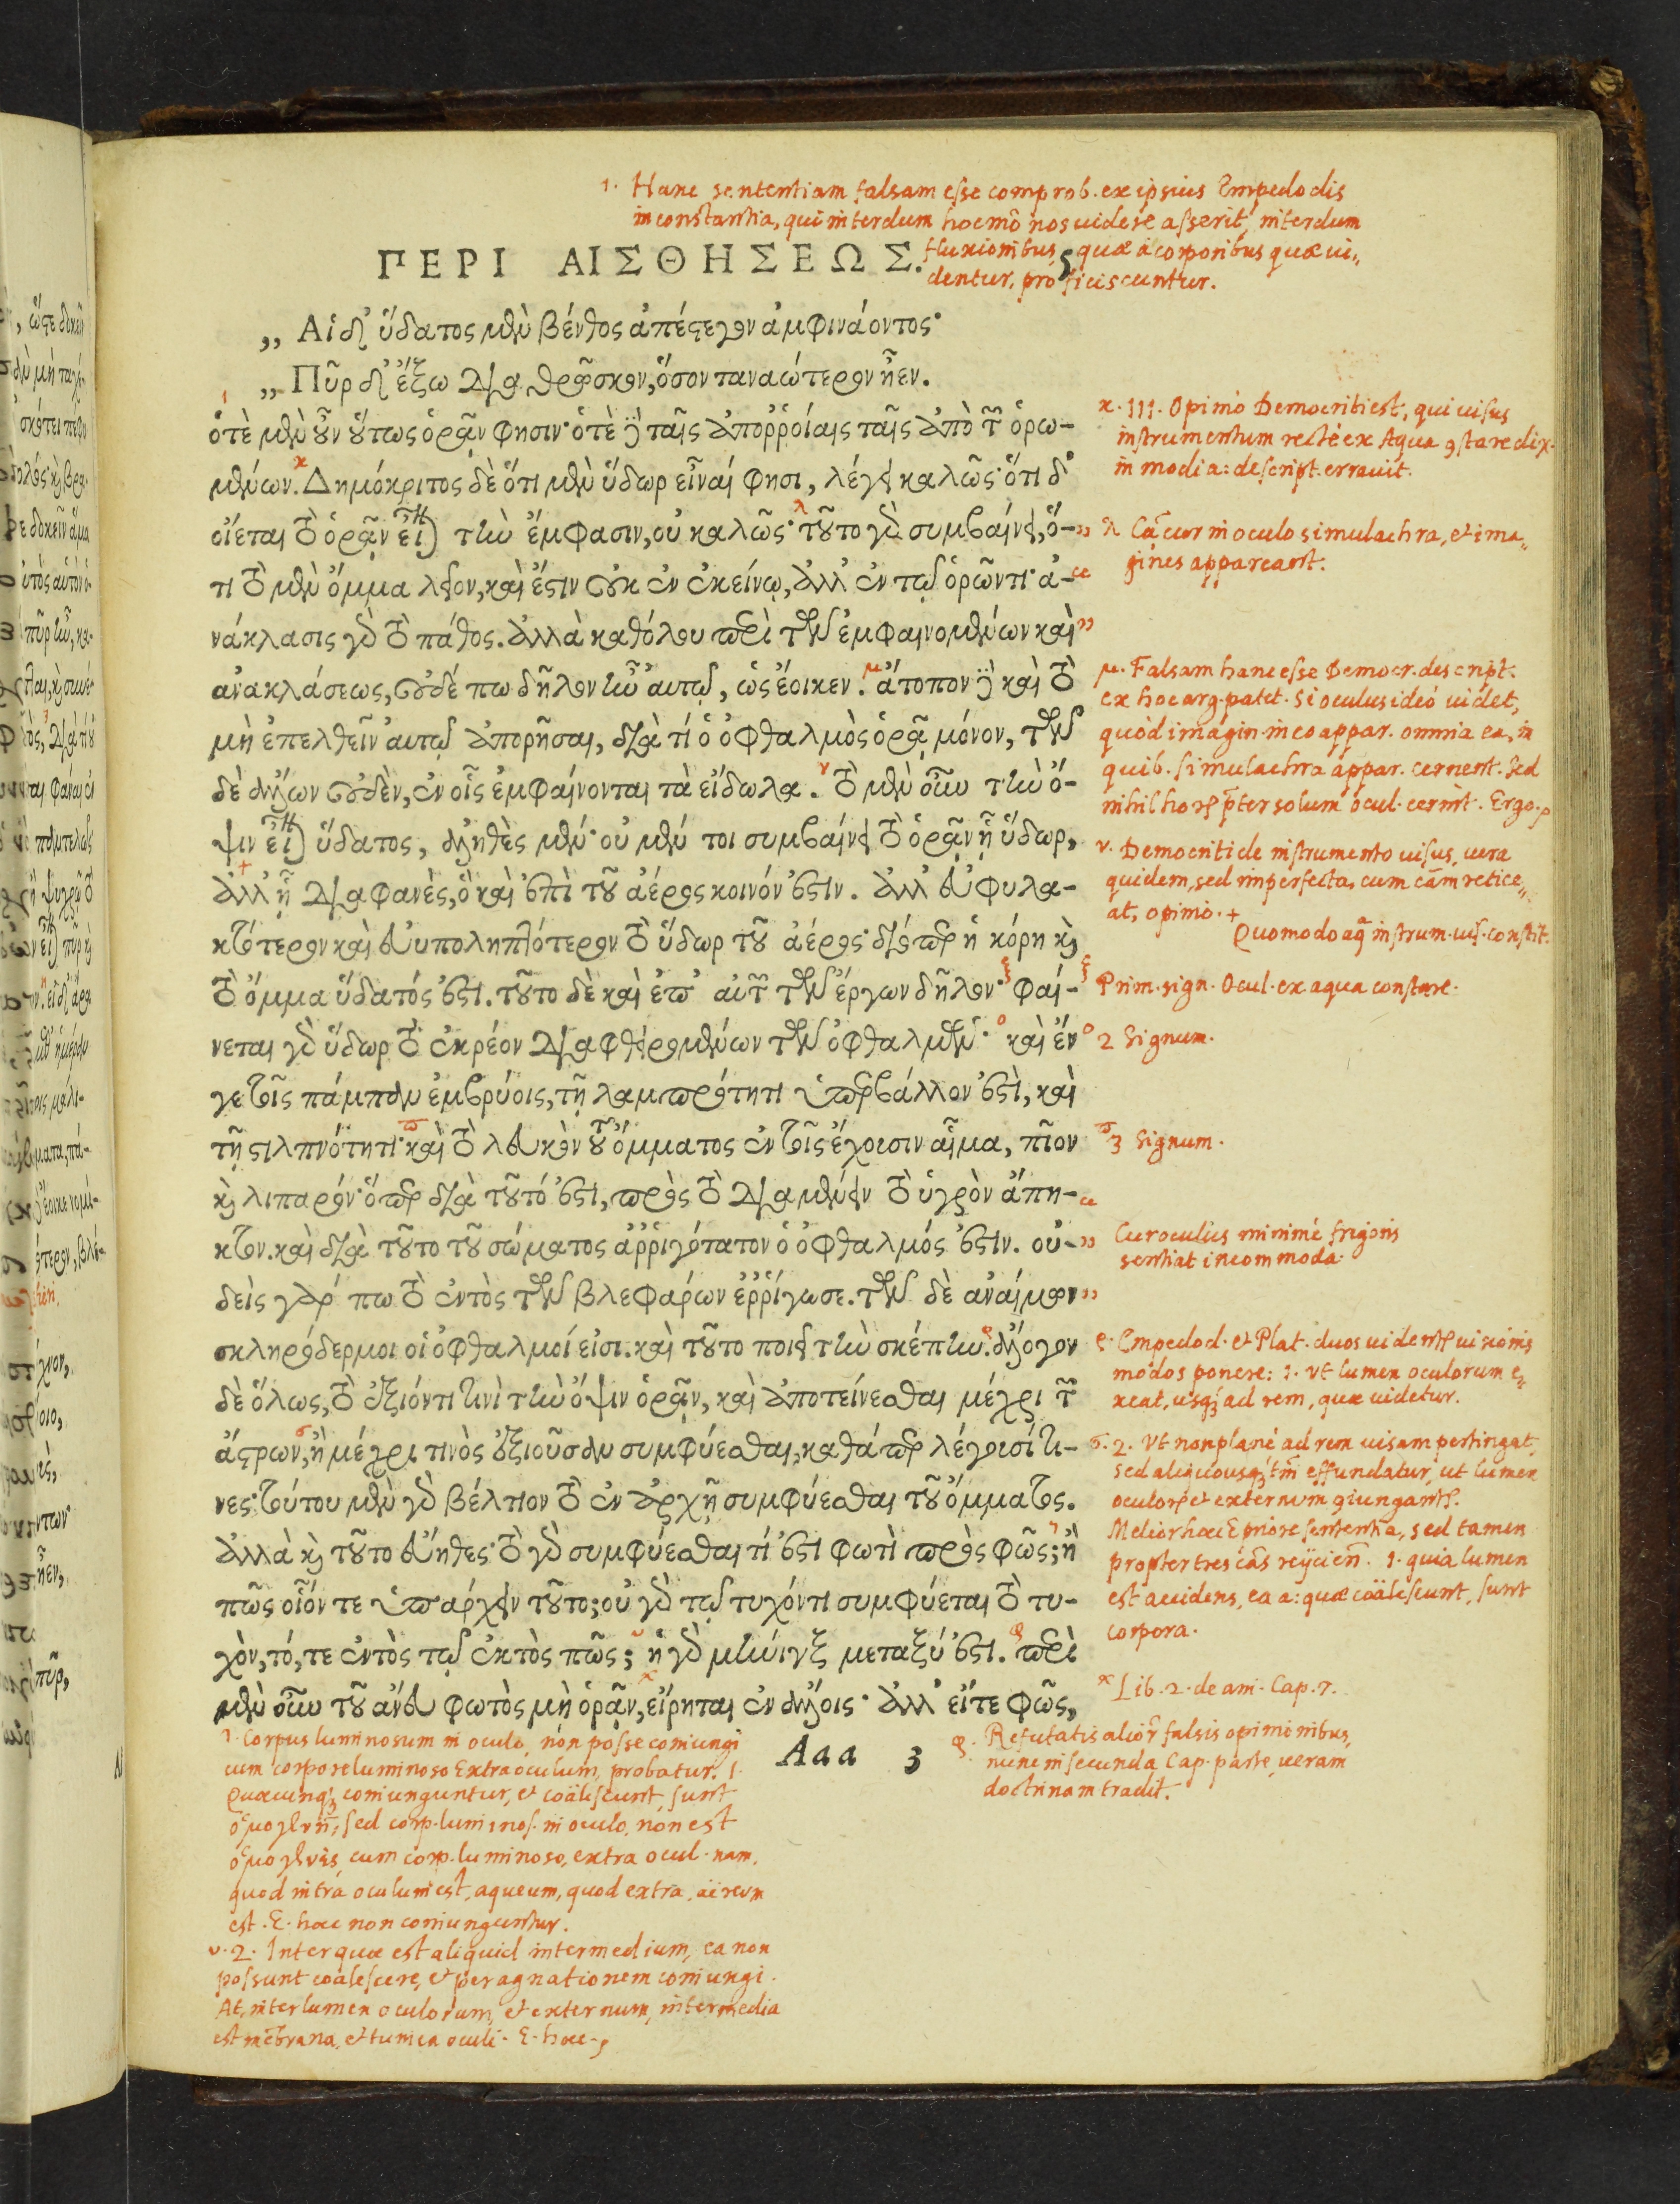 1. Hanc sententiam falsam esse comprob. ex ipsius Empedoclis
inconstantia, qui interdum hoc mō nos uidere asserit, interdum
fluxionibus, quæ à corporibus quæ ui„
dentur, proficiscuntur.
ΠΕΡΙ ΑΙΣΘΗΣΕΩΣ. 5
„ Αἱ δ' ὕδατος μὲν βένθος ἀπέστεγον ἀμφινάοντος·
„ Πῦρ δ' ἔξω διαθρῶσκον, ὅσον ταναώτερον ἦεν.
ὁτὲ μὲν οὖν οὕτως ὁρᾶν φησιν· ὁτὲ δὲ ταῖς ἀπορροίαις ταῖς ἀπὸ τῶν ὁρω-
μένων. Δημόκριτος δὲ ὅτι μὲν ὕδωρ εἶναί φησι, λέγει καλῶς· ὅτι δ'
οἴεται τὸ ὁρᾶν εἶναι τὴν ἔμφασιν, οὐ καλῶς· τοῦτο γὰρ συμβαίνει, ὅ-
τι τὸ μὲν ὄμμα λεῖον, καὶ ἔστιν οὐκ ἐν ἐκείνῳ, ἀλλ' ἐν τῷ ὁρῶντι· ἀ-
νάκλασις γὰρ τὸ πάθος. ἀλλὰ καθόλου περὶ τῶν ἐμφαινομένων καὶ
ἀνακλάσεως, οὐδέ πω δῆλον ἦν αὐτῷ, ὡς ἔοικεν. ἄτοπον δὲ καὶ τὸ
μὴ ἐπελθεῖν αὐτῷ ἀπορῆσαι, διὰ τί ὁ ὀφθαλμὸς ὁρᾷ μόνον, τῶν
δὲ ἄλλων οὐδὲν, ἐν οἷς ἐμφαίνονται τὰ εἴδωλα. τὸ μὲν οὖν τὴν ὄ-
ψιν εἶναι ὕδατος, ἀληθὲς μέν· οὐ μέν τοι συμβαίνει τὸ ὁρᾶν ᾗ ὕδωρ,
ἀλλ' ᾗ διαφανὲς, ὃ καὶ ἐπὶ τοῦ ἀέρος κοινόν ἐστιν. ἀλλ' εὐφυλα-
κτότερον καὶ εὐυποληπτότερον τὸ ὕδωρ τοῦ ἀέρος· διόπερ ἡ κόρη καὶ
τὸ ὄμμα ὕδατός ἐστι. τοῦτο δὲ καὶ ἐπ' αὐτῶν τῶν ἔργων δῆλον· φαί-
νεται γὰρ ὕδωρ τὸ ἐκρέον διαφθειρομένων τῶν ὀφθαλμῶν· καὶ ἔν
γε τοῖς πάμπαν ἐμβρύοις, τῇ λαμπρότητι ὑπερβάλλον ἐστὶ, καὶ
τῇ στιλπνότητι· καὶ τὸ λευκὸν τοῦ ὄμματος ἐν τοῖς ἔχουσιν αἷμα, πῖον
καὶ λιπαρόν· ὅπερ διὰ τοῦτό ἐστι, πρὸς τὸ διαμένειν τὸ ὑγρὸν ἄπη-
κτον. καὶ διὰ τοῦτο τοῦ σώματος ἀρριγότατον ὁ ὀφθαλμός ἐστιν. οὐ-
δεὶς γάρ πω τὸ ἐντὸς τῶν βλεφάρων ἐρρίγωσε. τῶν δὲ ἀναίμων
σκληρόδερμοι οἱ ὀφθαλμοί εἰσι. καὶ τοῦτο ποιεῖ τὴν σκέπην. ἄλογον
δὲ ὅλως, τὸ ἐξιόντι τινὶ τὴν ὄψιν ὁρᾶν, καὶ ἀποτείνεσθαι μέχρι τῶν
ἄστρων, ἢ μέχρι τινὸς ἐξιοῦσαν συμφύεσθαι, καθάπερ λέγουσί τι-
νες· τούτου μὲν γὰρ βέλτιον τὸ ἐν ἀρχῇ συμφύεσθαι τοῦ ὄμματος.
ἀλλὰ καὶ τοῦτο εὔηθες· τὸ γὰρ συμφύεσθαι τί ἐστι φωτὶ πρὸς φῶς; ἢ
πῶς οἷόν τε ὑπάρχειν τοῦτο; οὐ γὰρ τῷ τυχόντι συμφύεται τὸ τυ-
χὸν, τό, τε ἐντὸς τῷ ἐκτὸς πῶς; ἡ γὰρ μῆνιγξ μεταξύ ἐστι. περὶ
μὲν οὖν τοῦ ἄνευ φωτὸς μὴ ὁρᾶν, εἴρηται ἐν ἄλλοις· ἀλλ' εἴτε φῶς,
Aaa 3
κ. III. Opinio Democriti est, qui uisus
instrumentum rectè ex Aqua 9stare dix.
in modi a: descript. errauit.
λ Cā cur in oculo simulachra, et ima„
gines appareant.
μ. Falsam hanc esse Democr. descript.
ex hoc arg. patet. Si oculus ideò uidet,
quòd imagin. in eo appar. omnia ea, in
quib. simulachra appar. cernent. Sed
nihil horꝝ p̄ter solum ocul. cernit. Ergo.
ν. Democriti de instrumento uisus, uera
quidem, sed imperfecta, cum cām retice„
at, opinio. +
Quomodo aq̄ instrum. uis. constit.
ξ Prim. sign. Ocul. ex aqua constare.
ο 2 Signum.
π 3 Signum.
Cur oculus minimè frigoris
sentiat incommoda.
ρ. Empedocl. et Plat. duos uident uisionis
modos ponere: 1. vt lumen oculorum e„
xeat, usq; ad rem, quæ uidetur.
σ. 2. Vt non planè ad rem uisam pertingat,
sed aliquousq; tm̄ effundatur, ut lumen
oculorꝝ et externum 9iungantꝝ.
Melior hæc E priore sententia, sed tamen
propter tres cās reijcien. 1. quia lumen
est accidens, ea a: quæ coälescunt, sunt
corpora.
χ Lib. 2. de ani. Cap. 7.
φ. Refutatis alior̄ falsis opinionibus,
nunc in secunda Cap. parte ueram
doctrinam tradit.
τ. Corpus luminosum in oculo, non posse coniungi
cum corpore luminoso Extra oculum, probatur. 1.
Quæcunq; coniunguntur, et coälescunt, sunt
ὁμογενῆ; sed corp. luminos. in oculo, non est
ὁμογενὲς cum corp. luminoso, extra ocul. nam.
quod intrà oculum est, aqueum, quod extra, aëreum
est. E. hæc non coniunguntur.
υ. 2. Inter quæ est aliquid intermedium, ea non
possunt coalescere, et per agnationem coniungi.
At, inter lumen oculorum, et externum, intermedia
est mēbrana, et tunica oculi. E. hæc.